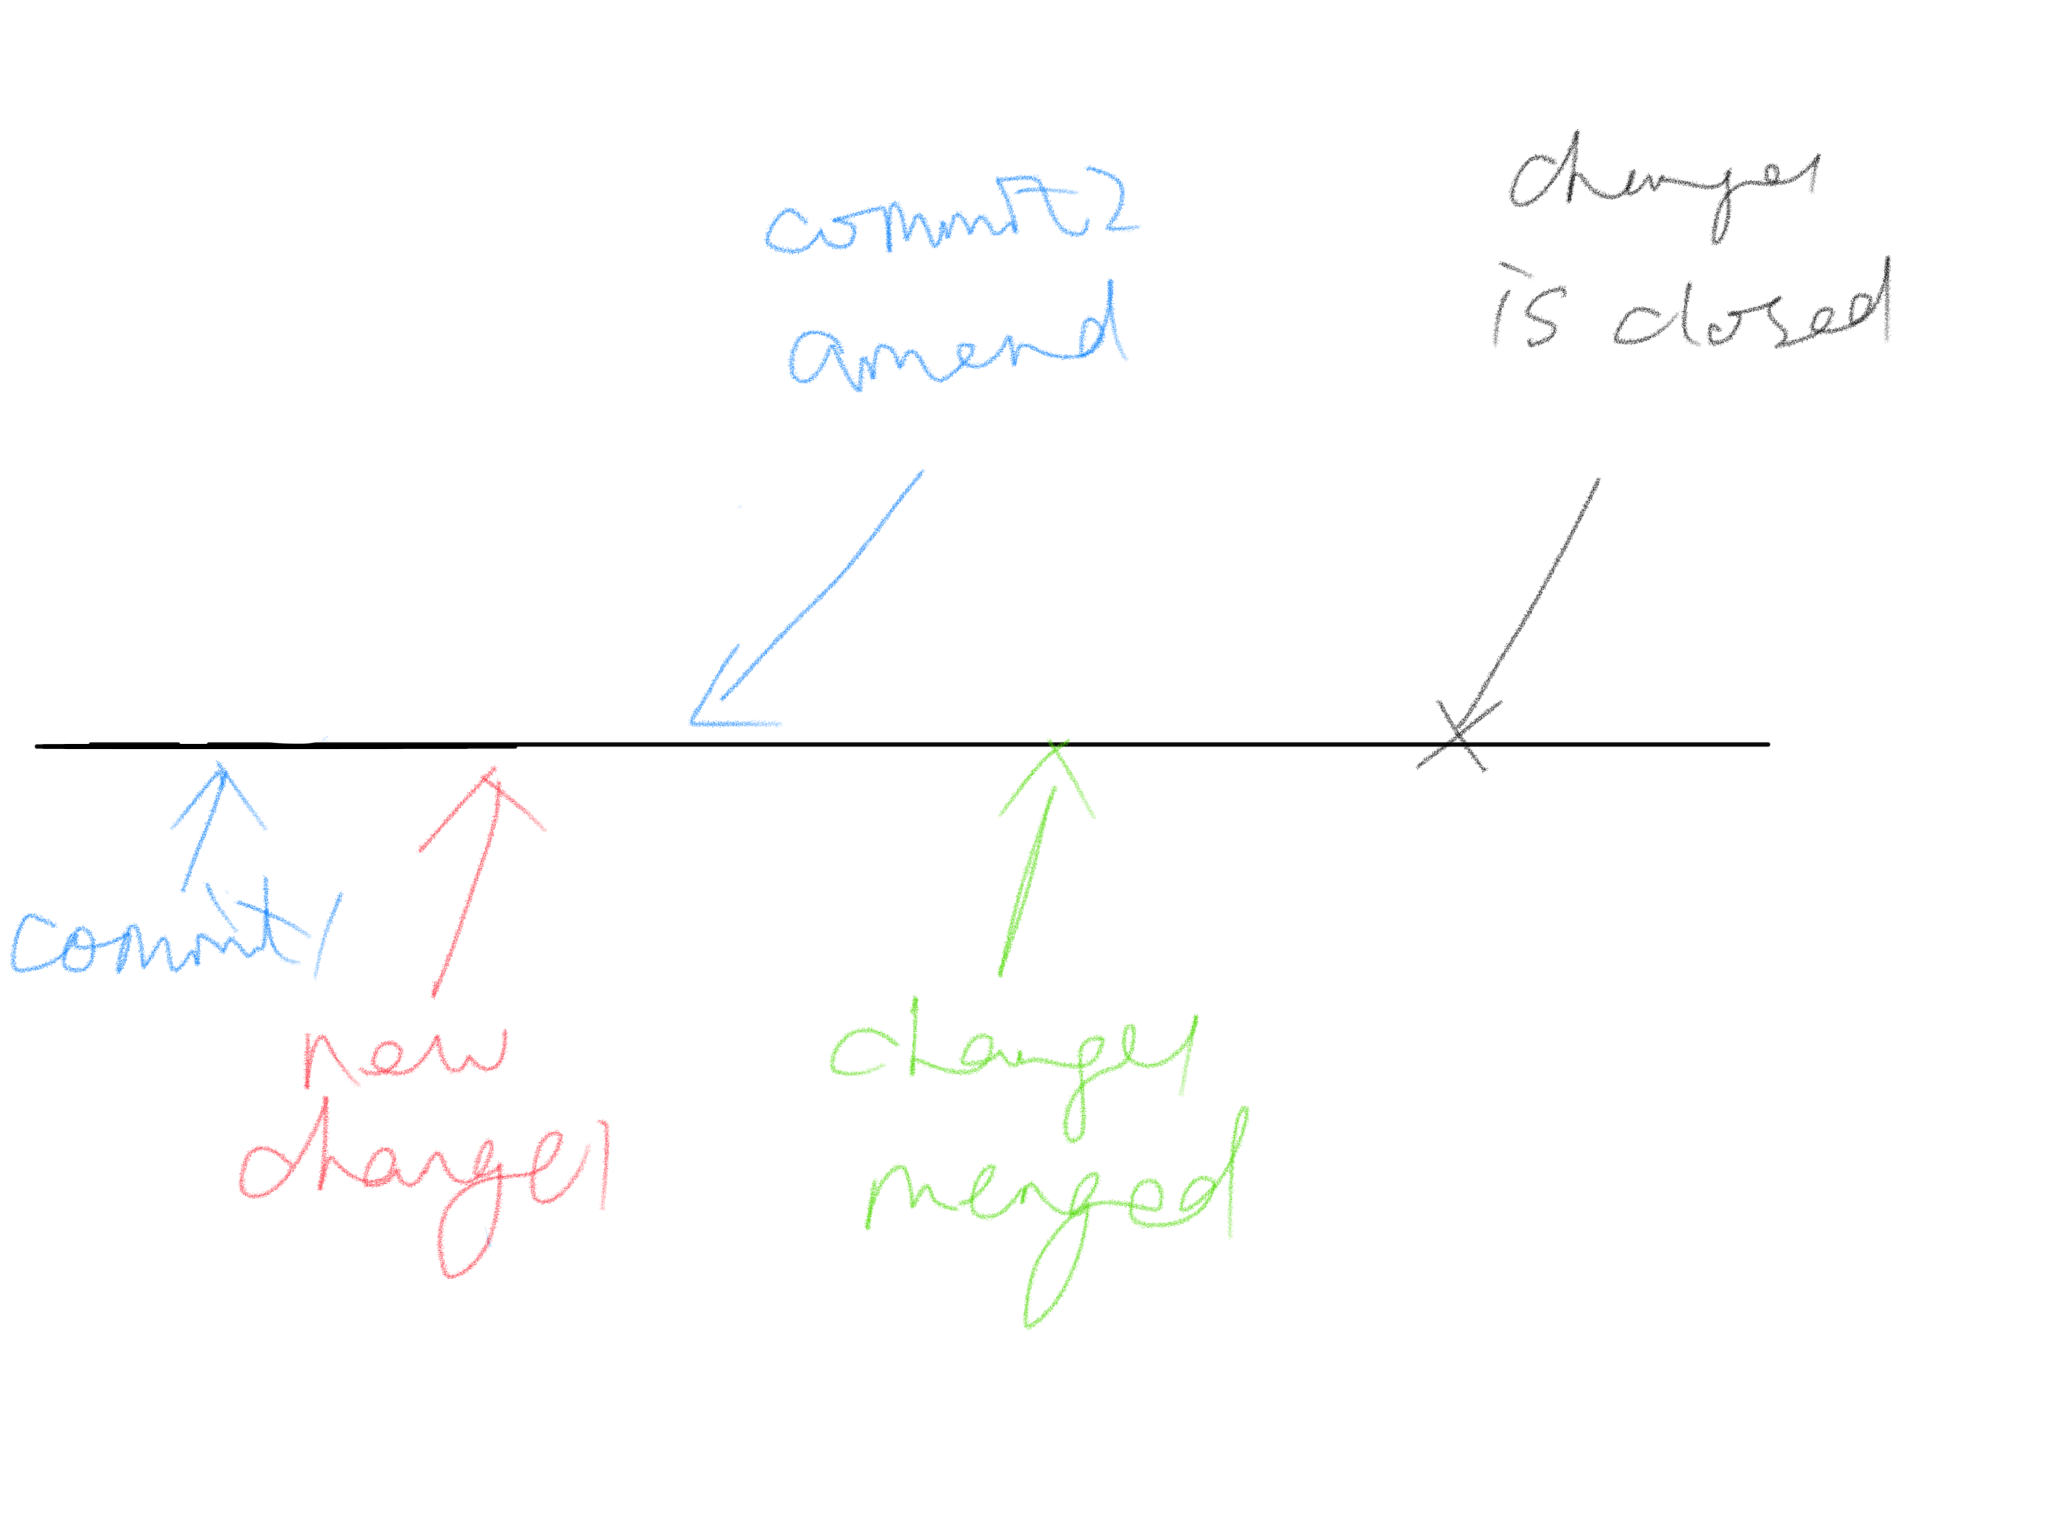 commit2
amend
change1
is closed
commit1
new
change1
change1
merged